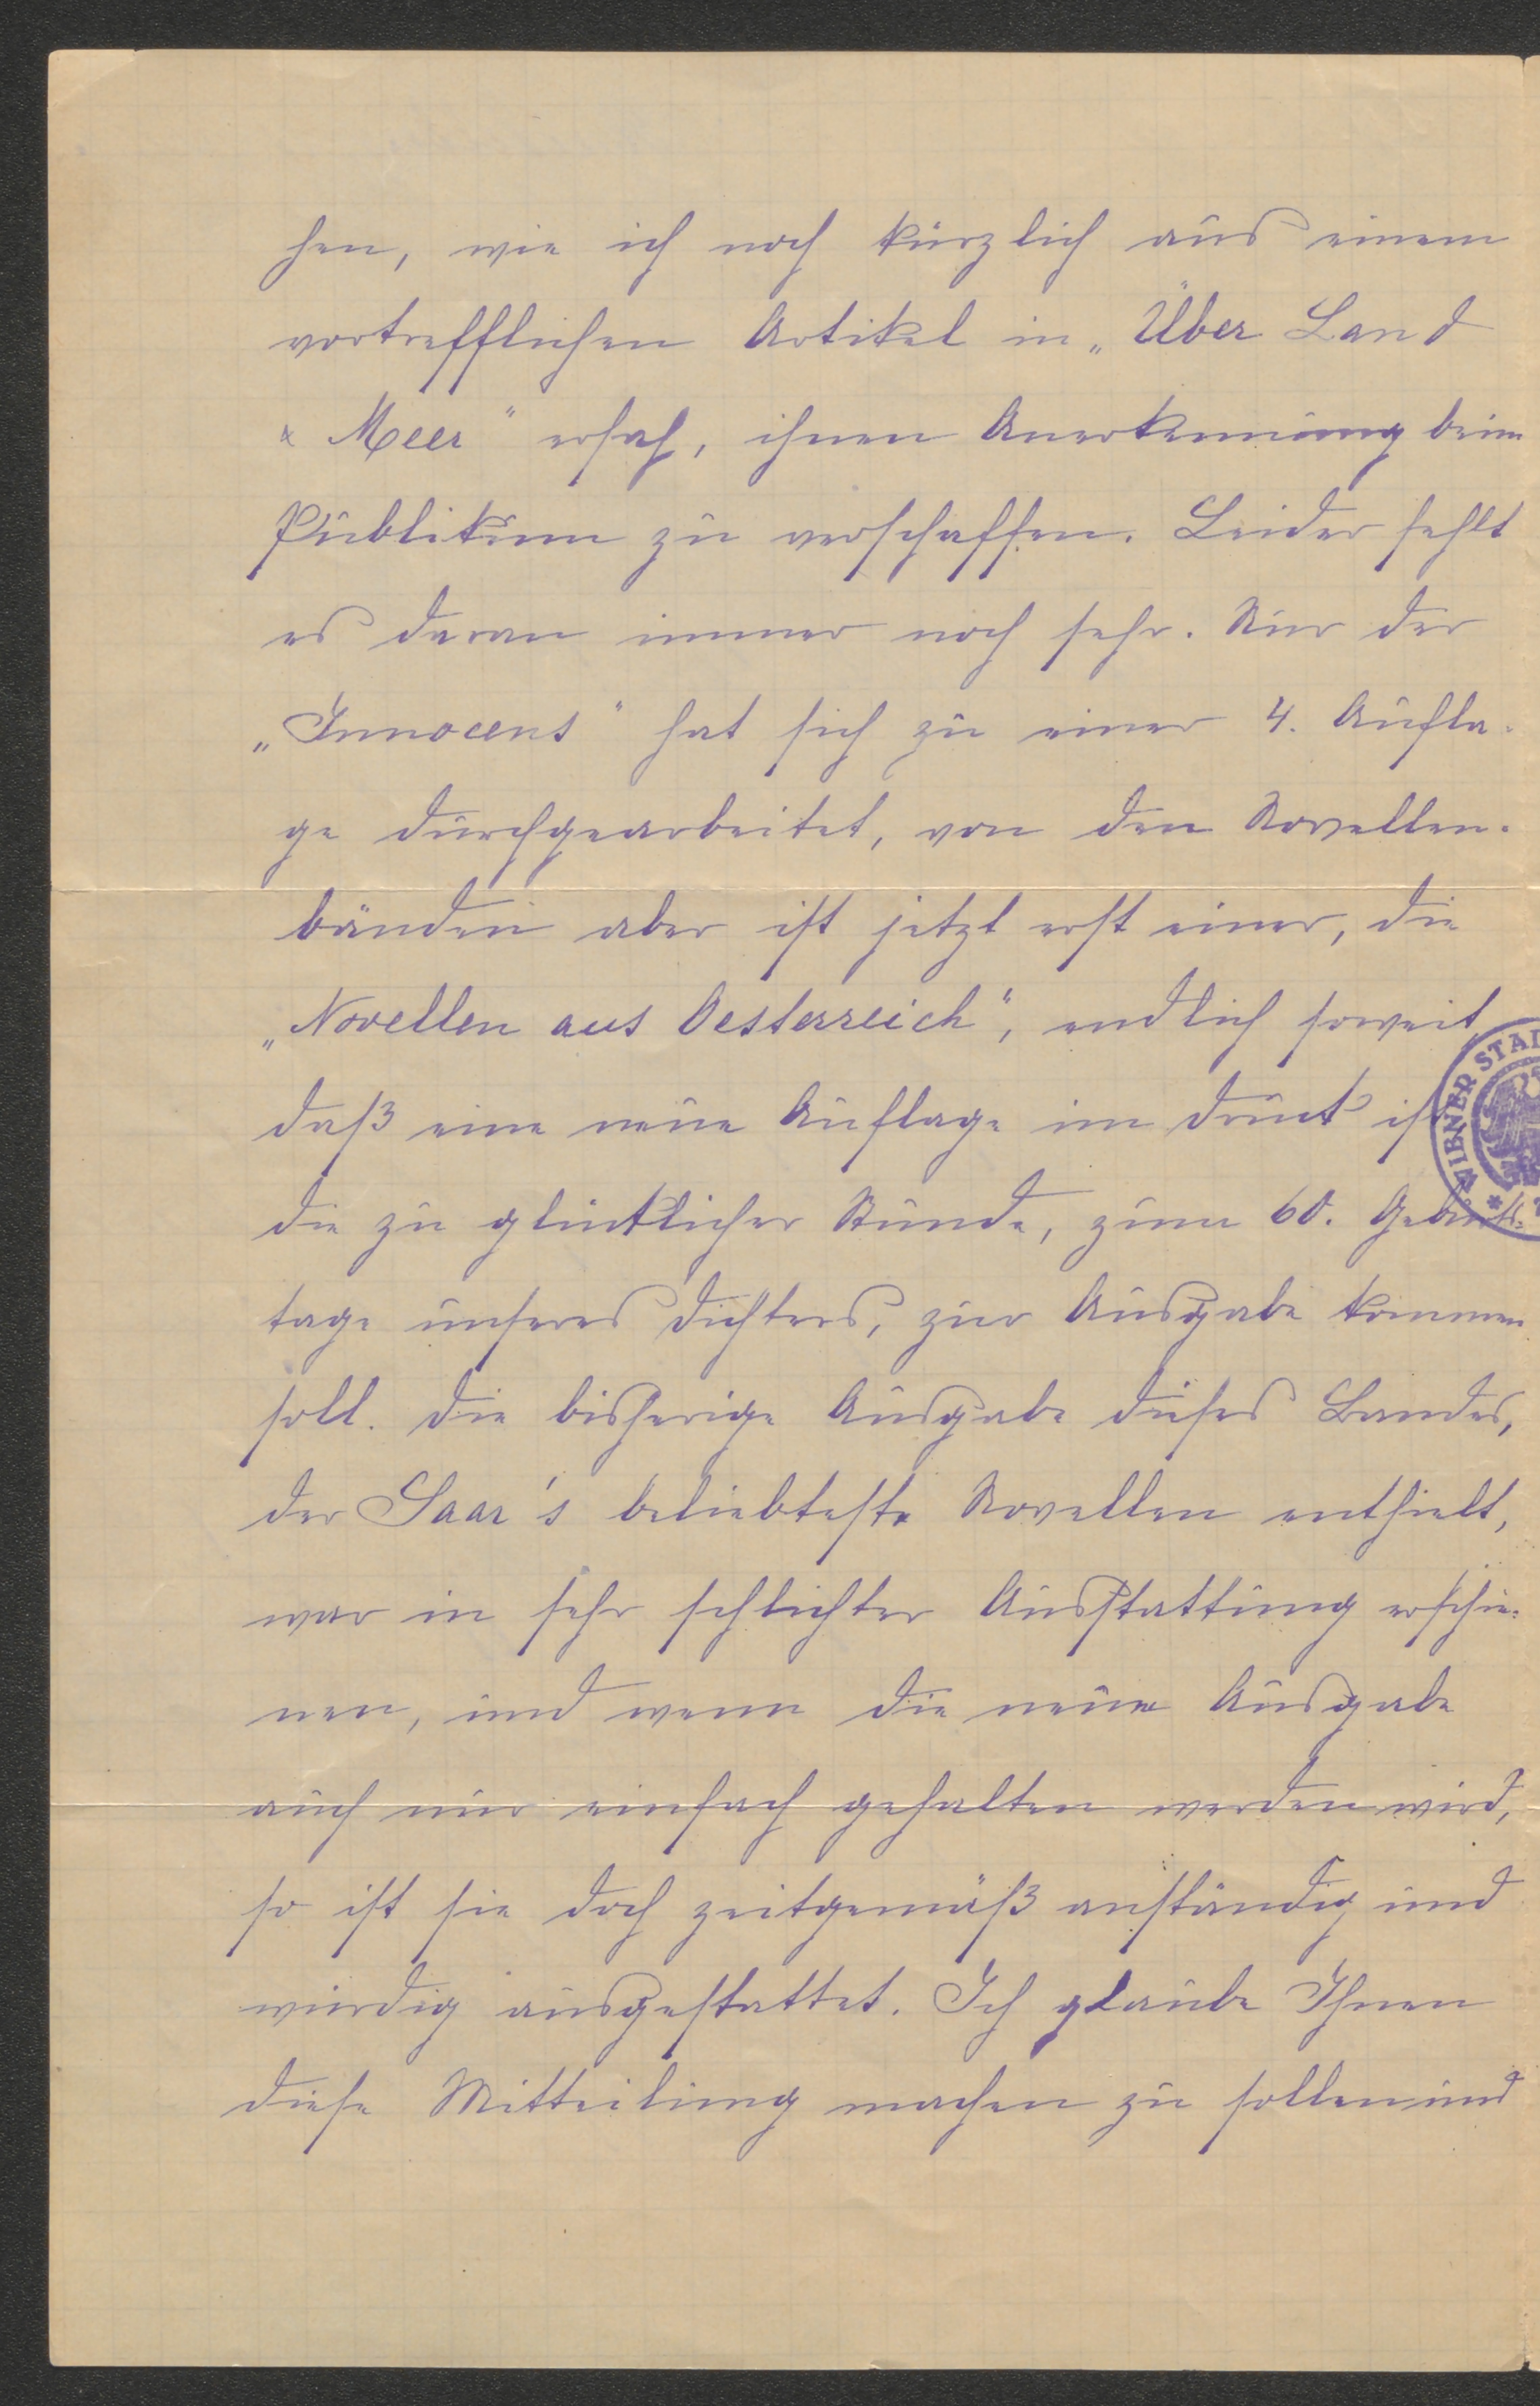 hen, wie ich noch kürzlich aus einem
vortrefflichen Artikel in „Über Land
& Meer" ersah, ihnen Anerkennung beim
Publikum zu verschaffen. Leider fehlt
es daran immer noch sehr. Nur der
„Innocens" hat sich zu einer 4. Aufla-
ge durchgearbeitet, von den Novellen-
bänden aber ist jetzt erst einer, die
„Novellen aus Oesterreich", endlich soweit,
daß eine neue Auflage im Druck ist
die zu glücklicher Stunde, zum 60. Geburts-
tage unseres Dichters, zur Ausgabe kommen
soll. Die bisherige Ausgabe dieses Bandes,
der Saar's beliebteste Novellen enthielt,
war in sehr schlichter Ausstattung erschie-
nen, und wenn die neue Ausgabe
auch nur einfach gehalten werden wird,
so ist sie doch zeitgemäß anständig und
würdig ausgestattet. Ich glaube Ihnen
diese Mitteilung machen zu sollen und
WIENER STAD